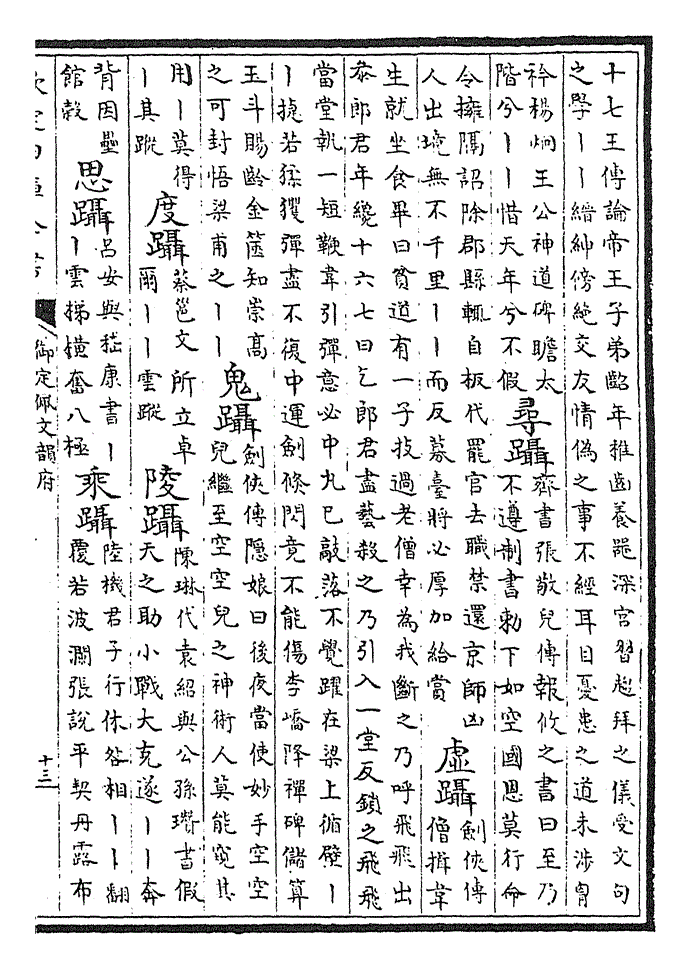 十七王傳論帝王子弟齠年推齒養器深宫習趨拜之儀受文句
之學丨丨縉紳傍絶交友情偽之事不經耳目憂患之道未涉胷
衿楊炯王公神道碑瞻太
階兮丨丨惜天年兮不假
尋躡
齊書張敬兒傳報攸之書曰至乃
不遵制書勅下如空國恩莫行命
令擁隔詔除郡縣輒自板代罷官去職禁還京師凶
人出境無不千里丨丨而反募臺將必厚加給賞
虚躡
劍俠傳
僧揖韋
生就坐食畢曰貧道有一子技過老僧幸為我斷之乃呼飛飛出
叅郎君年纔十六七曰乞郎君盡藝殺之乃引入一堂反鎖之飛飛
當堂執一短鞭韋引彈意必中丸已敲落不覺躍在梁上循壁丨
丨捷若猱玃彈盡不復中運劍倐閃竟不能傷李嶠降禪碑儲算
玉斗賜齡金篋知崇髙
之可封悟梁甫之丨丨
鬼躡
劍俠傳隠娘曰後夜當使妙手空空
兒繼至空空兒之神術人莫能窺其
用丨莫得
丨其蹤
度躡
蔡邕文所立卓
爾丨丨雲蹤
陵躡
陳琳代袁紹與公孫瓚書假
天之助小戰大克遂丨丨奔
背因壘
館榖
思躡
吕安與嵇康書丨
丨雲梯横奮八極
乘躡
陸機君子行休咎相丨丨翻
覆若波瀾張說平契丹露布
欽定四庫全書
御定佩文韻府
十三